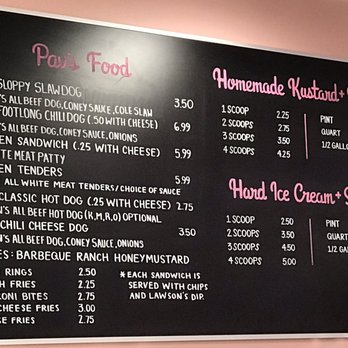 Pav's Food
SLOPPY SLAWDOG
'S ALL BEEF DOG, CONEY SAUCE, COLE SLAW 3.50
FOOTLONG CHILI DOG (.50 WITH CHEESE)
'S ALL BEEF DOG, CONEY SAUCE, ONIONS 6.99
EN SANDWICH (.25 WITH CHEESE)
TE MEAT PATTY 5.99
EN TENDERS
ALL WHITE MEAT TENDERS/CHOICE OF SAUCE 5.99
CLASSIC HOT DOG (.25 WITH CHEESE) 2.75
N'S ALL BEEF HOT DOG (K,M,R,O) OPTIONAL
CHILI CHEESE DOG 3.50
N'S ALL BEEF DOG, CONEY SAUCE, ONIONS
ES: BARBEGUE RANCH HONEYMUSTARD
RINGS 2.50
H FRIES 2.25
RONI BITES 2.75
CHEESE FRIES 3.00
E FRIES 2.75
* EACH SANDWICH IS
SERVED WITH CHIPS
AND LAWSON'S DIP.
Homemade Kustard +
1 SCOOP 2.25
2 SCOOPS 2.75
3 SCOOPS 3.50
4 SCOOPS 4.25
PINT
QUART
1/2 GALLO
Hard Ice Cream + S
1 SCOOP 2.50
2 SCOOPS 3.50
3 SCOOPS 4.50
4 SCOOPS 5.00
PINT
QUART
1/2 GA